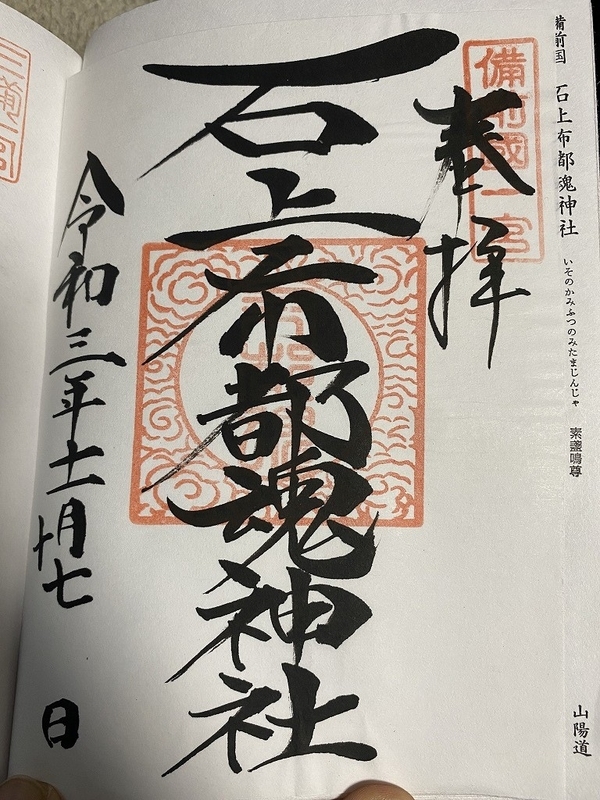 備前国 石上布都魂神社 いそのかみふつのみたまじんじゃ 素盞鳴尊 山陽道
備前國一宮
奉拝
石上布都魂神社
令和三年十一月十七日